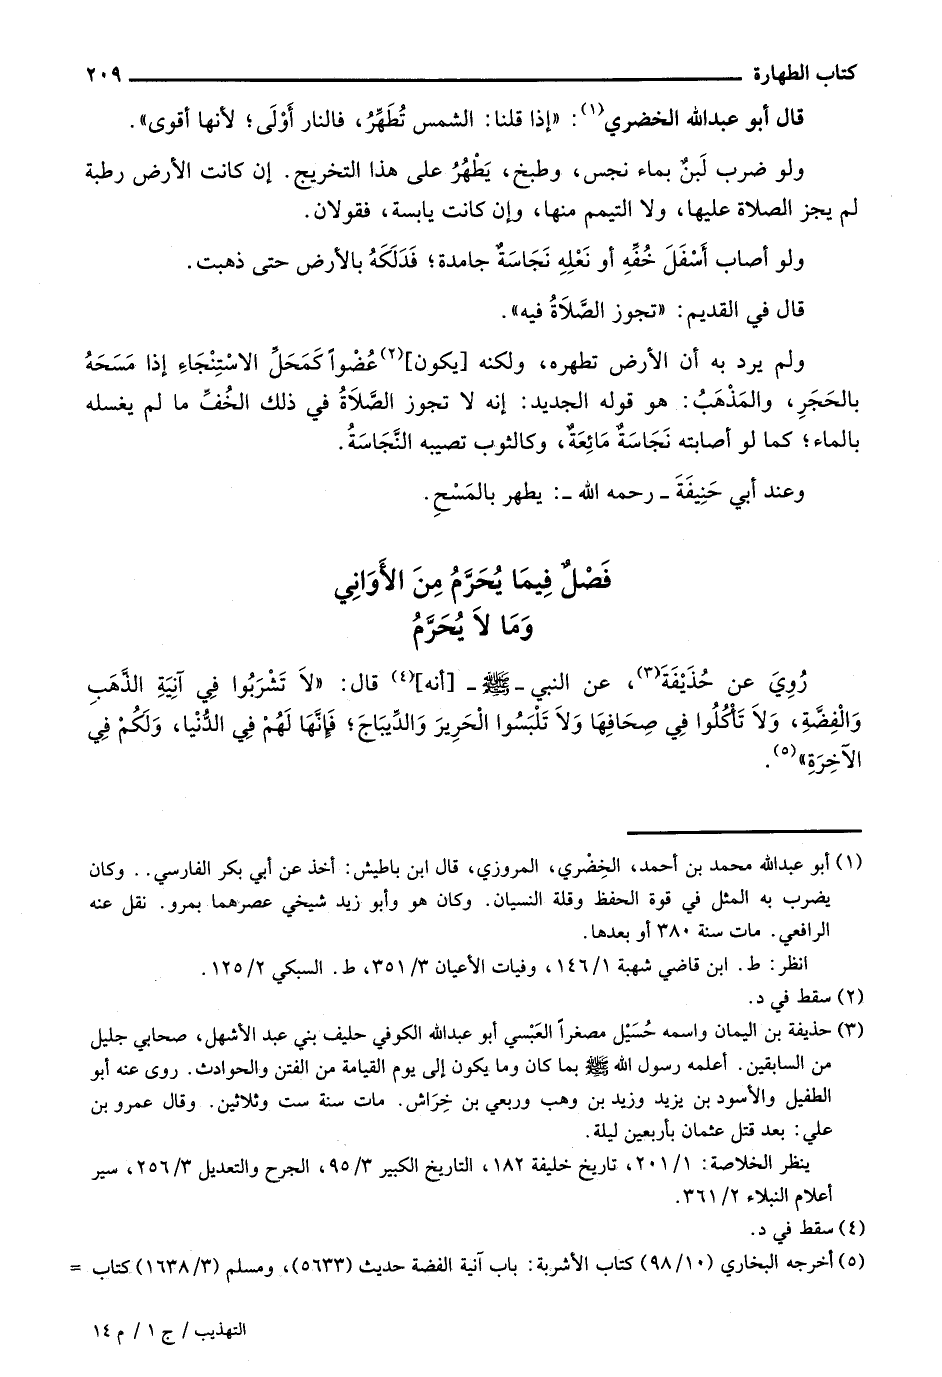 كتاب الطهارة ٢٠٩
قال أبو عبدالله الخضري(١): «إذا قلنا: الشمس تُطَهِّرُ، فالنار أَوْلَى؛ لأنها أقوى».
ولو ضرب لَبنٌ بماء نجس، وطبخ، يَطْهُرُ على هذا التخريج. إن كانت الأرض رطبة
لم يجز الصلاة عليها، ولا التيمم منها، وإن كانت يابسة، فقولان.
ولو أصاب أَسْفَلَ خُفِّهِ أو نَعْلِهِ نَجَاسَةٌ جامدة؛ فَدَلَكَهُ بالأرض حتى ذهبت.
قال في القديم: «تجوز الصَّلاَةُ فيه».
ولم يرد به أن الأرض تطهره، ولكنه [يكون](٢) عُضْواً كَمَحَلِّ الاسْتِنْجَاءِ إذا مَسَحَهُ
بالحَجَرِ، والمَذْهَبُ: هو قوله الجديد: إنه لا تجوز الصَّلاَةُ في ذلك الخُفِّ ما لم يغسله
بالماء؛ كما لو أصابته نَجَاسَةٌ مَائِعَةٌ، وكالثوب تصيبه النَّجَاسَةُ.
وعند أبي حَنِيفَةَ ـ رحمه الله ـ: يطهر بالمَسْحِ.
فَصْلٌ فِيمَا يُحَرَّمُ مِنَ الأَوَانِي
وَمَا لاَ يُحَرَّمُ
رُوِيَ عن حُذَيْفَةَ(٣)، عن النبي ـ ﷺ ـ [أنه](٤) قال: «لاَ تَشْرَبُوا فِي آنِيَةِ الذَّهَبِ
وَالْفِضَّةِ، وَلاَ تَأْكُلُوا فِي صِحَافِهَا وَلاَ تَلْبَسُوا الْحَرِيرَ وَالدِّيبَاجَ؛ فَإِنَّهَا لَهُمْ فِي الدُّنْيا، وَلَكُمْ فِي
الآخِرَةِ»(٥).
(١) أبو عبدالله محمد بن أحمد، الخِضْري، المروزي، قال ابن باطيش: أخذ عن أبي بكر الفارسي.. وكان
يضرب به المثل في قوة الحفظ وقلة النسيان. وكان هو وأبو زيد شيخي عصرهما بمرو. نقل عنه
الرافعي. مات سنة ٣٨٠ أو بعدها.
انظر: ط. ابن قاضي شهبة ١/ ١٤٦، وفيات الأعيان ٣/ ٣٥١، ط. السبكي ٢/ ١٢٥.
(٢) سقط في د.
(٣) حذيفة بن اليمان واسمه حُسَيْل مصغراً العَبْسي أبو عبدالله الكوفي حليف بني عبد الأشهل، صحابي جليل
من السابقين. أعلمه رسول الله ﷺ بما كان وما يكون إلى يوم القيامة من الفتن والحوادث. روى عنه أبو
الطفيل والأسود بن يزيد وزيد بن وهب وربعي بن خِرَاش. مات سنة ست وثلاثين. وقال عمرو بن
علي: بعد قتل عثمان بأربعين ليلة.
ينظر الخلاصة: ١/ ٢٠١، تاريخ خليفة ١٨٢، التاريخ الكبير ٣/ ٩٥، الجرح والتعديل ٣/ ٢٥٦، سير
أعلام النبلاء ٢/ ٣٦١.
(٤) سقط في د.
(٥) أخرجه البخاري (١٠/ ٩٨) كتاب الأشربة: باب آنية الفضة حديث (٥٦٣٣)، ومسلم (٣/ ١٦٣٨) كتاب =
التهذيب/ ج ١/ م ١٤